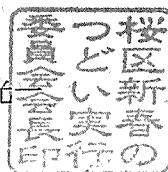 桜区新春の
つどい実行
委員会会長印